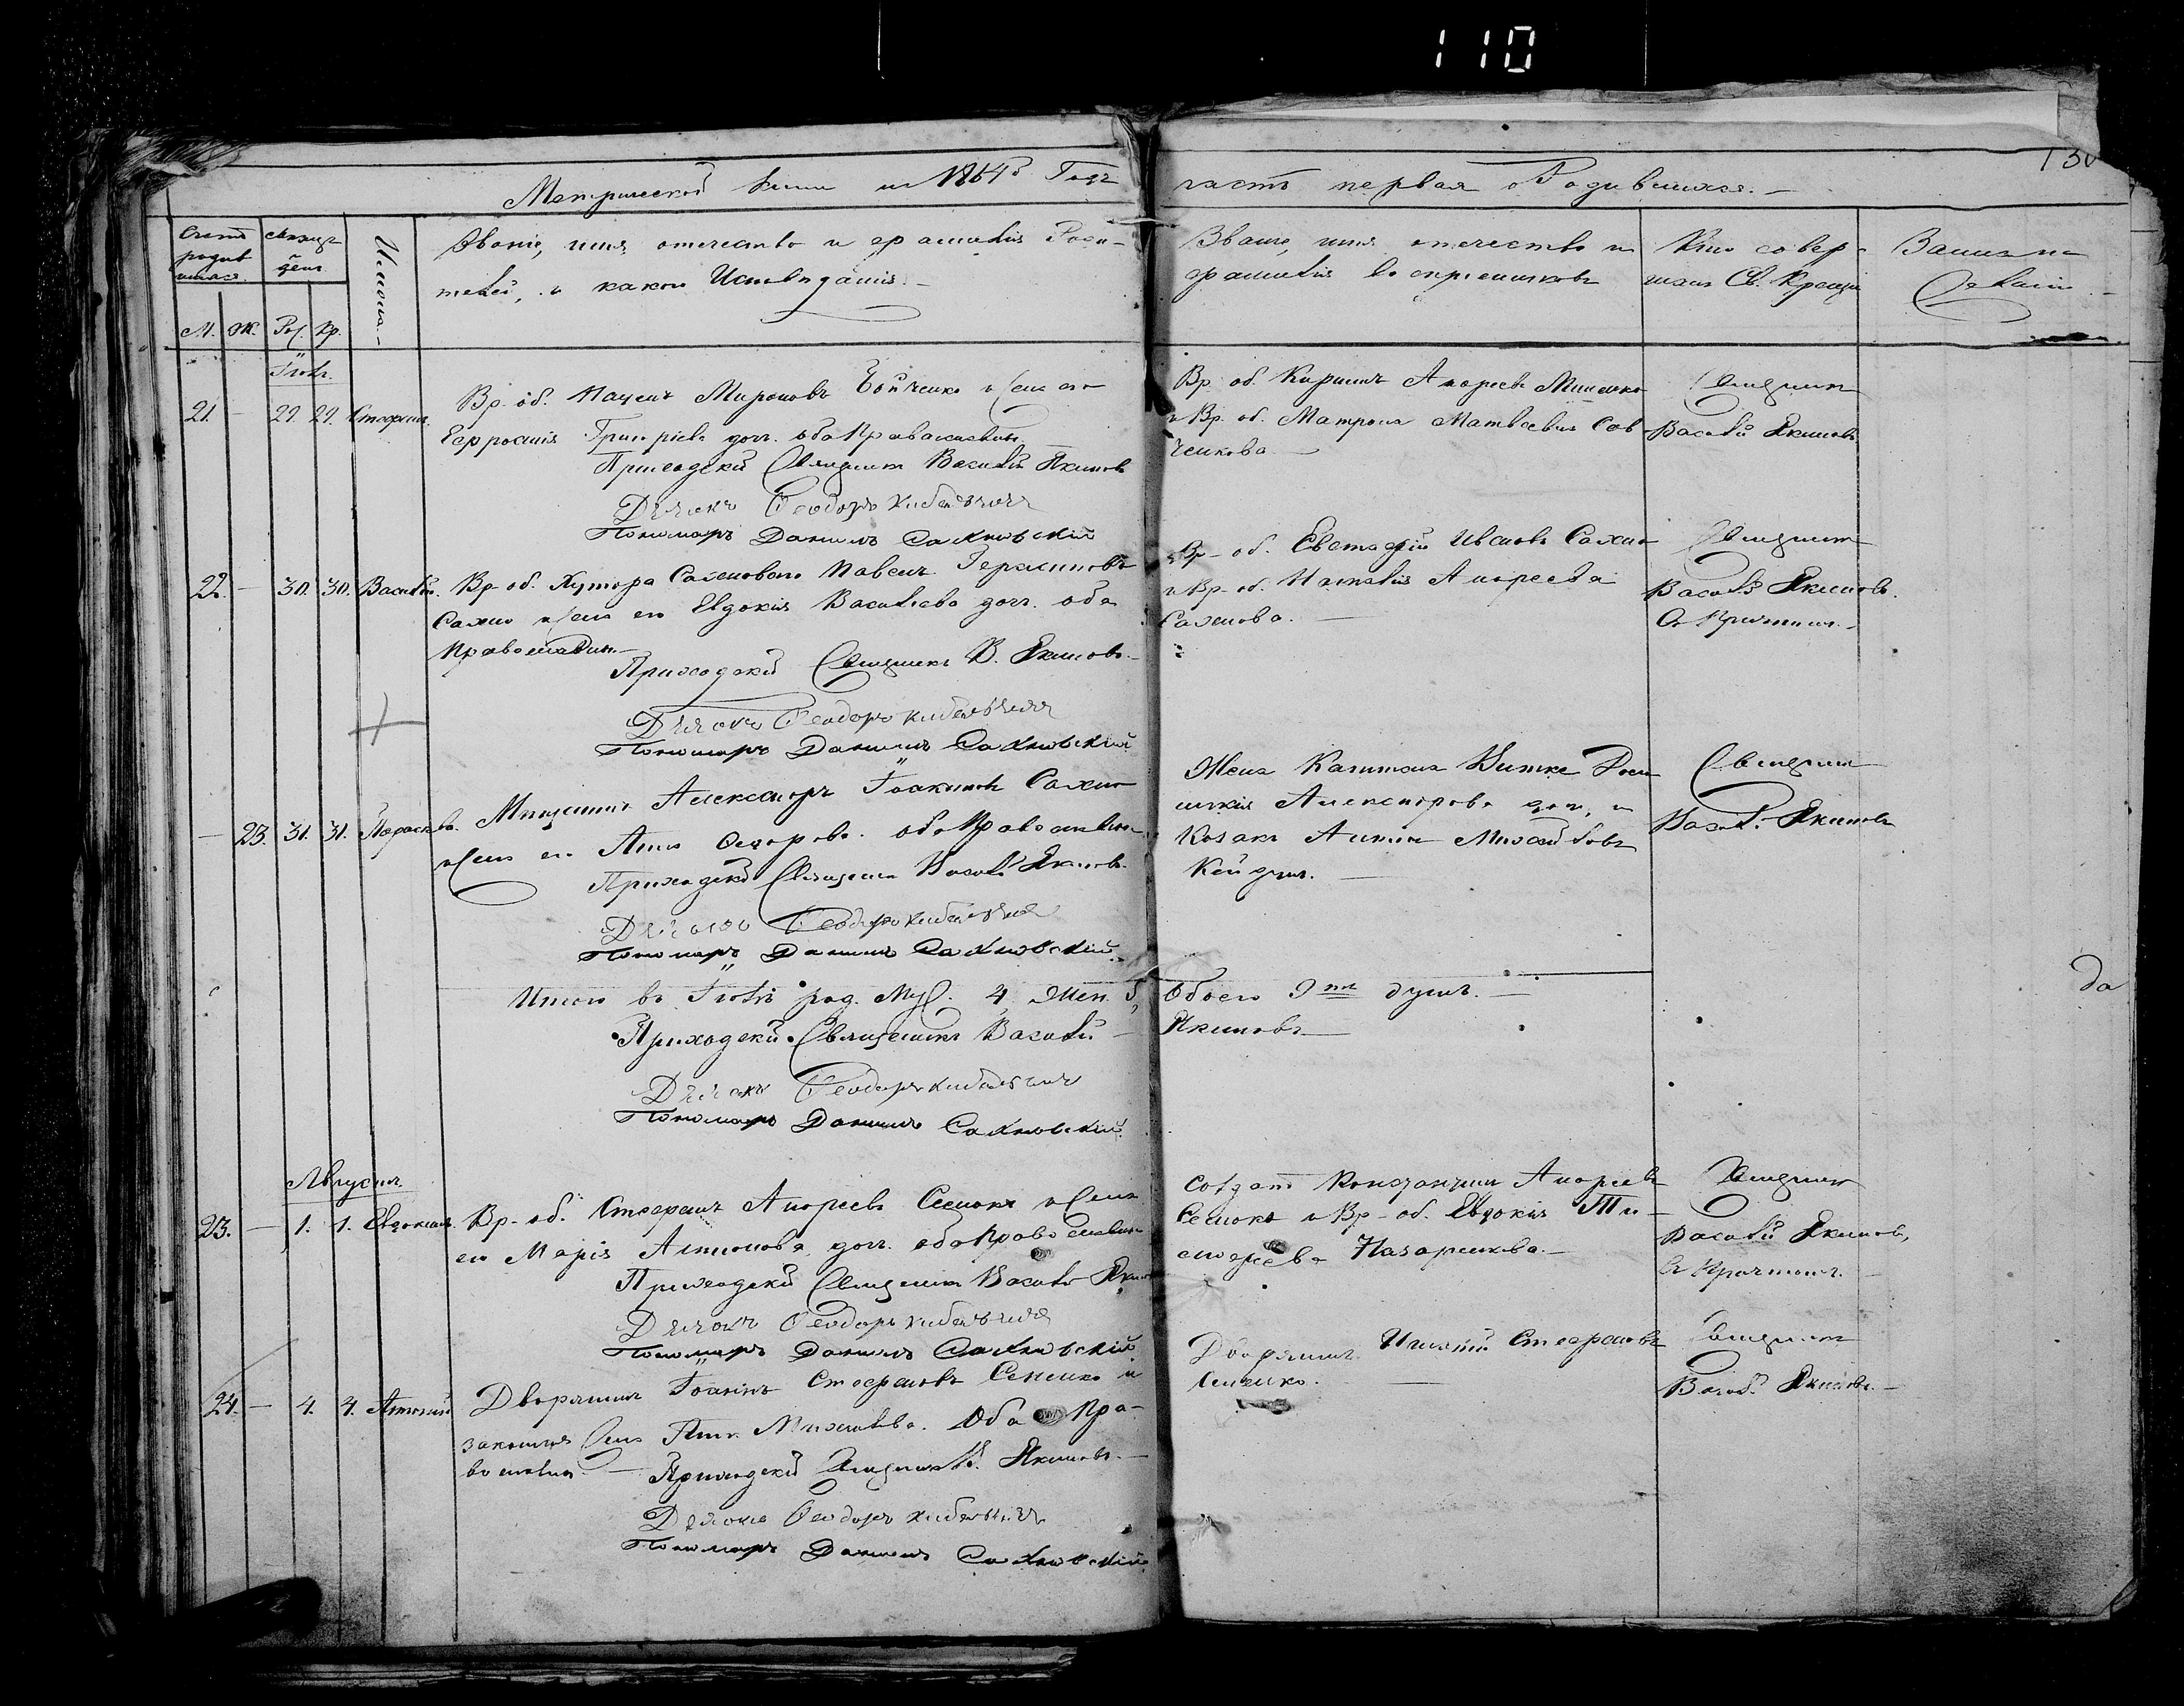 110
Метрической книги на 1864й Годъ
часть первая о Родившихся.
Счетъ родив шихся
Мѣсяцъ и день
Имена
Званіе, имя отечество и фамилія Роди-
телей, и какого Исповѣданія.
Званіе, имя отечество и
фамилія воспріемниковъ
Кто совер-
шалъ Св. Крещен
М. Ж. Род. Кр.
Іюль.
21. — 29. 29. Стефанъ.
Вр. об. Миронъ Бойченко и жена его
Евфросинія Григоріева доч. оба Православные
Приходскій Священник Василій Якимовъ
Дячокъ Ѳеодоръ Кибальчичъ
Пономарь Данiилъ Сахновскій
Вр. об. Кириллъ Андреевъ
и Вр. об. Матрона Матвеева Сав
ченкова
Священник
Василій Якимовъ
22. — 30. 30. Василій.
Вр. об. Хутора Сахнового Павелъ Герасимовъ
Сахно и жена его Евдокія Василіева доч. оба
Православные
Приходскій Священникъ В. Якимовъ.
Дячокъ Ѳеодоръ Кибальчичъ
Пономарь Даниилъ Сахновскій
Вр. об. Евстафій Ивановъ Сахно
и Вр. об. Наталія Андреева
Сахнова.
Священник
Василій Якимовъ.
Съ Причтомъ.
— 23. 31. 31. Парасковія.
Мѣщанинъ Александръ Іоакимовъ Сахно
и жена его Анна Ѳедорова. оба Православные
Приходскій Священник Василій Якимовъ.
Дячокъ Ѳеодоръ Кибальчичъ
Пономарь Даниилъ Сахновскій
Жена Капитана
Александрова доч, и
Козакъ Антонъ Михайловъ
Священник
Васил. Якимовъ
Итого въ Іюлѣ род. Муж. 4 Жен. 5,
Обоего 9ть душъ.
Приходскій Священникъ Василій
Якимовъ
Дячокъ Ѳеодоръ Кибальчичъ
Пономарь Даниилъ Сахновскій
да
Августъ.
23. — 1. 1. Евдокимъ.
Вр. об. Стефанъ Андреевъ Сенокъ и жена
его Марія Антонова доч. оба Православные
Приходскій Священник Василій Яким
Дячокъ Ѳеодоръ Кибальчичъ
Пономарь Даниилъ Сахновскій
Солдатъ Константинъ Андреевъ
Сенокъ и Вр. об. Евдокія Ти-
моѳеева Назаренкова.
Священник
Василій Якимовъ,
съ Причтомъ.
24. — 4. 4. Антоній
Дворянинъ Іоаннъ Стефановъ Сененко и
законная жена Анна Михайлова. Оба Пра-
вославные. — Приходскій Священникъ В. Якимовъ.
Дячокъ Ѳеодоръ Кибальчичъ
Пономарь Даниилъ Сахновскій
Дворянинъ Игнатій Стефановъ
Сененко.
Священник
Васил. Якимовъ.